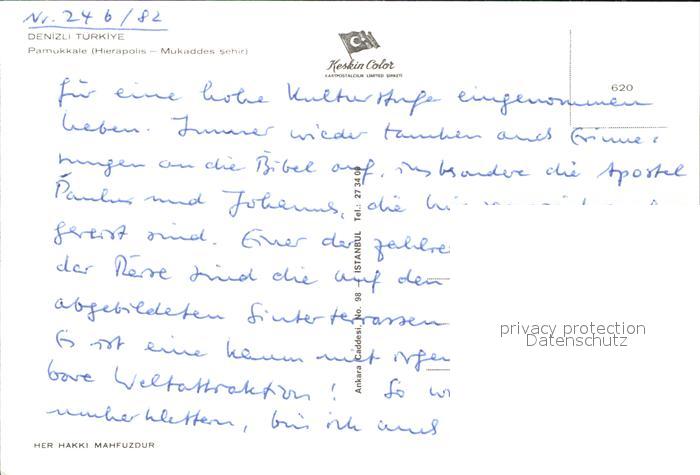 Nr. 24 b / 82
DENİZLİ TÜRKİYE
Pamukkale (Hierapolis — Mukaddes şehir)
Keskin Color
KARTPOSTALCILIK LIMITED ŞİRKETİ
620
für eine hohe Kulturstufe eingenommen
haben. Immer wieder tauchen auch Erinne=
rungen an die Bibel auf, insbesondere die Apostel
Paulus und Johannes, die hier
gereist sind. Einer der zahlre
der Reise sind die auf den
abgebildeten Sinterterrassen
Es ist eine kaum mit irgen
bare Weltattraktion! So wi
umherklettern, bin ich auch
Ankara Caddesi, No. 98 — İSTANBUL Tel.: 27 34 00
privacy protection
Datenschutz
HER HAKKI MAHFUZDUR